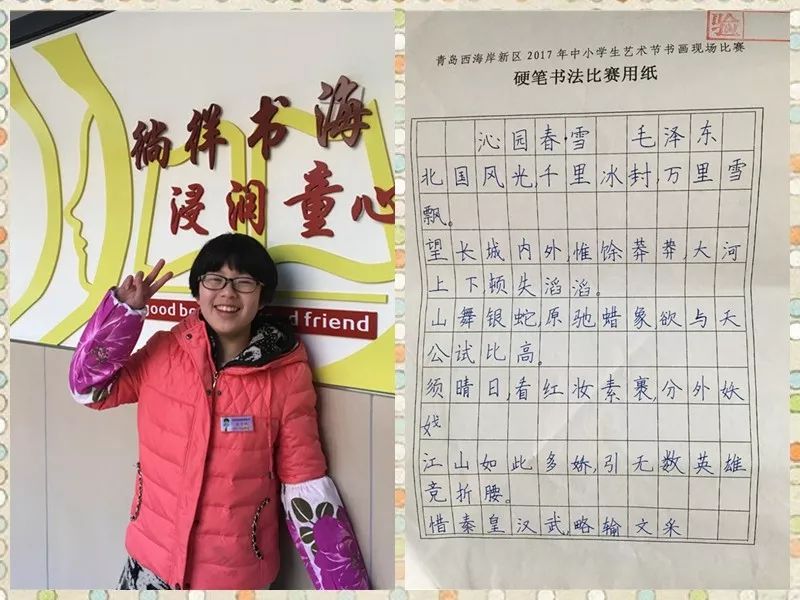 徜祥书海
浸润童心
good
friend
验
青岛西海岸新区2017年中小学生艺术节书画现场比赛
硬笔书法比赛用纸
沁园春·雪 毛泽东
北国风光,千里冰封,万里雪
飘。
望长城内外,惟馀莽莽,大河
上下顿失滔滔。
山舞银蛇,原驰蜡象,欲与天
公试比高。
须晴日,看红妆素裹,分外妖
娆
江山如此多娇,引无数英雄
竞折腰。
惜秦皇汉武,略输文采